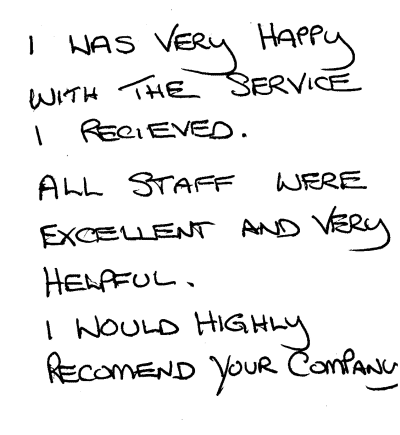 I WAS VERY HAPPY
WITH THE SERVICE
I RECIEVED.
ALL STAFF WERE
EXCELLENT AND VERY
HELPFUL.
I WOULD HIGHLY
RECOMEND YOUR COMPANY